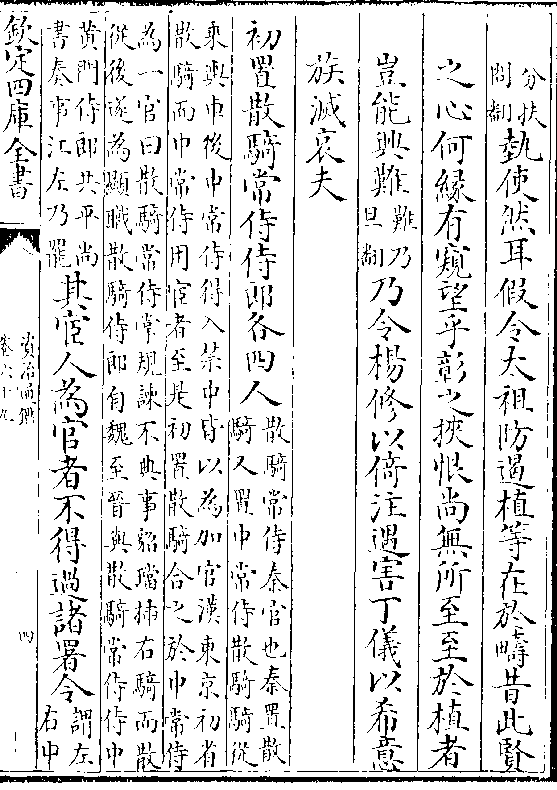 分扶
問翻
埶使然耳假令太祖防遏植等在於疇昔此賢
之心何縁有窺望乎彰之挾恨尚無所至至於植者
豈能興難
難乃
旦翻
乃令楊修以倚注遇害丁儀以希意
族滅哀夫
初置散騎常侍侍郎各四人
散騎常侍秦官也秦置散
騎又置中常侍散騎騎從
乘輿車後中常侍得入禁中皆以為加官漢東京初省
散騎而中常侍用宦者至是初置散騎合之於中常侍
為一官曰散騎常侍常規諌不典事貂璫揷右騎而散
從後遂為顯職散騎侍郎自魏至晉與散騎常侍侍中
黄門侍郎共平尚
書奏事江左乃罷
其宦人為官者不得過諸署令
謂左
右中
欽定四庫全書
資治通鑑
卷六十九
四